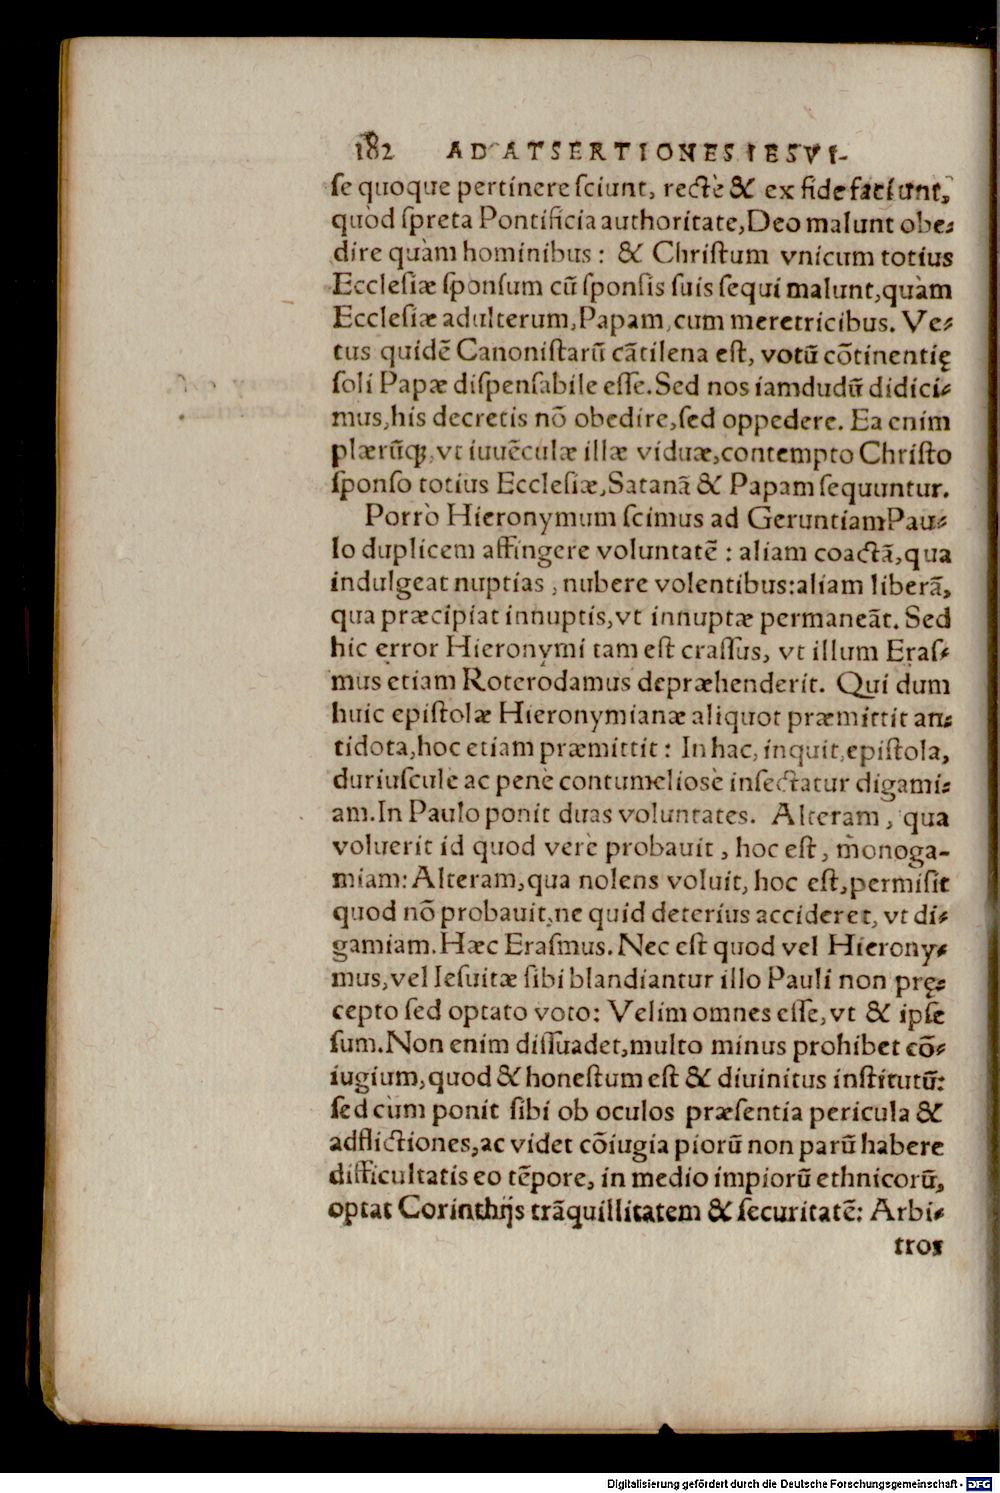 182 AD ATSERTIONES IESVI-
ſe quoque pertinere ſciunt, rectè & ex fide faciunt,
quòd ſpreta Pontificia authoritate, Deo malunt obe-
dire quàm hominibus: & Chriſtum vnicum totius
Eccleſiæ ſponſum cū ſponſis ſuis ſequi malunt, quàm
Eccleſiæ adulterum, Papam, cum meretricibus. Ve-
tus quidē Canoniſtarū cātilena eſt, votū cōtinentię
ſoli Papæ diſpenſabile eſſe. Sed nos iamdudū didici-
mus, his decretis nō obedire, ſed oppedere. Ea enim
plærūq;, vt iuuēculæ illæ viduæ, contempto Chriſto
ſponſo totius Eccleſiæ, Satanā & Papam ſequuntur.
Porrò Hieronymum ſcimus ad Geruntiam Pau-
lo duplicem affingere voluntatē: aliam coactā, qua
indulgeat nuptias, nubere volentibus: aliam liberā,
qua præcipiat innuptis, vt innuptæ permaneāt. Sed
hic error Hieronymi tam eſt craſſus, vt illum Eraſ-
mus etiam Roterodamus depræhenderit. Qui dum
huic epiſtolæ Hieronymianæ aliquot præmittit an-
tidota, hoc etiam præmittit: In hac, inquit, epiſtola,
duriuſculè ac penè contumelioſè inſectatur digami-
am. In Paulo ponit duas voluntates. Alteram, qua
voluerit id quod verè probauit, hoc eſt, monoga-
miam: Alteram, qua nolens voluit, hoc eſt, permiſit
quod nō probauit, ne quid deterius accideret, vt di-
gamiam. Hæc Eraſmus. Nec eſt quod vel Hierony-
mus, vel Ieſuitæ ſibi blandiantur illo Pauli non prę-
cepto ſed optato voto: Velim omnes eſſe, vt & ipſe
ſum. Non enim diſſuadet, multo minus prohibet cō-
iugium, quod & honeſtum eſt & diuinitus inſtitutū:
ſed cùm ponit ſibi ob oculos præſentia pericula &
adflictiones, ac videt cōiugia piorū non parū habere
difficultatis eo tēpore, in medio impiorū ethnicorū,
optat Corinthijs trāquillitatem & ſecuritatē: Arbi-
tros
Digitalisierung gefördert durch die Deutsche Forschungsgemeinschaft - DFG